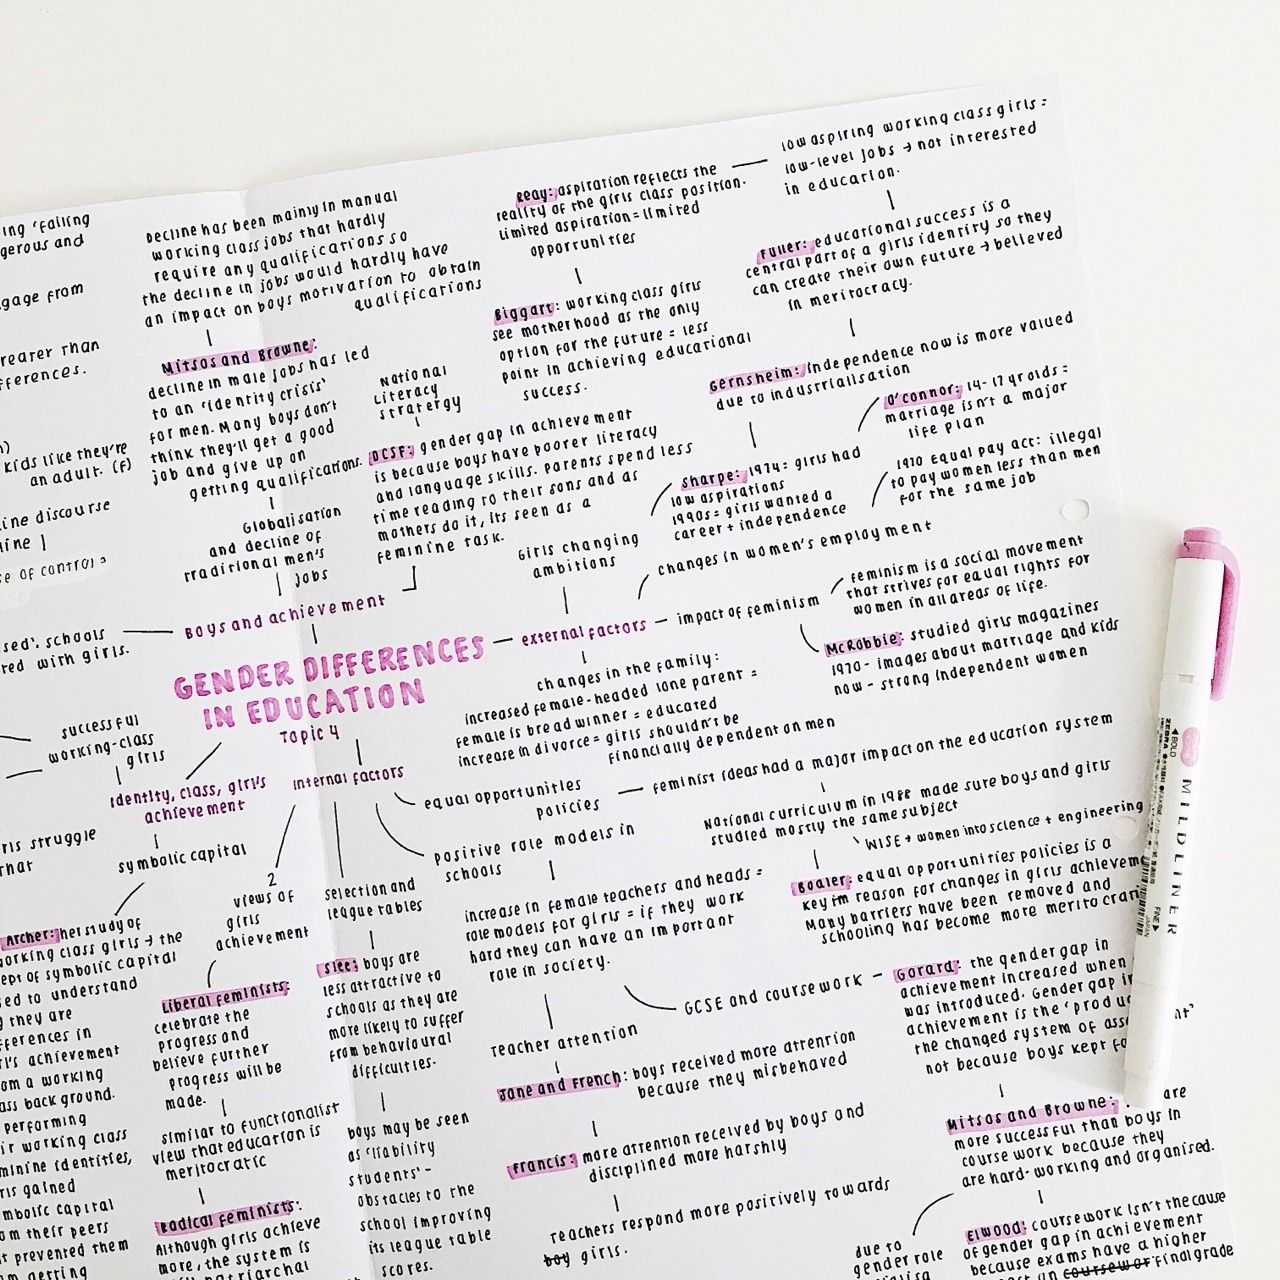 ing 'failing
gerous and
gage from
reater than
fferences.
kids like they're
an adult. (F)
line discourse
line )
se of control?
sed'. schools
red with girls.
Decline has been mainly in manual
working class jobs that hardly
require any qualifications so
the decline in jobs would hardly have
an impact on boys motivation to obtain
qualifications
Mitsos and Browne:
decline in male jobs has led
to an 'identity crisis'
for men. Many boys don't
think they'll get a good
job and give up on
getting qualifications.
Globalisation
and decline of
traditional men's
jobs
National
Literacy
stratergy
DCSF: gender gap in achievement
is because boys have poorer literacy
and language skills. Parents spend less
time reading to their sons and as
mothers do it, its seen as a
feminine task.
Boys and achievement
GENDER DIFFERENCES
IN EDUCATION
Topic 4
Reay: aspiration reflects the
reality of the girls class position.
limited aspiration = limited
opportunities
low aspiring working class girls =
low-level jobs → not interested
in education.
Biggart: working class girls
see motherhood as the only
option for the future = less
point in achieving educational
success.
Fuller: educational success is a
central part of a girls identity so they
can create their own future → believed
in meritocracy.
Gernsheim: Independence now is more valued
due to industrialisation
O'connor: 14-17 yr olds =
marriage isn't a major
life plan
Sharpe: 1974 = girls had
low aspirations
1990s = girls wanted a
career + independence
1970 Equal pay act: illegal
to pay women less than men
for the same job
Girls changing
ambitions
Changes in women's employment
external factors
impact of feminism
feminism is a social movement
that strives for equal rights for
women in all areas of life.
McRobbie: studied girls magazines
1970 - images about marriage and kids
now - strong independent women
changes in the family:
increased female-headed lone parent =
female is breadwinner = educated
increase in divorce = girls shouldn't be
financially dependent on men
internal factors
equal opportunities
policies
feminist ideas had a major impact on the education system
National curriculum in 1988 made sure boys and girls
studied mostly the same subject
WISE + women into science + engineering
Boaler: equal opportunities policies is a
key im reason for changes in girls achievem
Many barriers have been removed and
schooling has become more meritocratic
positive role models in
schools
increase in female teachers and heads =
role models for girls = if they work
hard they can have an important
role in society.
GCSE and coursework
Gorard: the gender gap in
achievement increased when
was introduced. Gender gap in
achievement is the 'produc
the changed system of ass nt'
not because boys kept fa
Mitsos and Browne: are
more successful than boys in
course work because they
are hard-working and organised.
Elwood: coursework isn't the cause
of gender gap in achievement
because exams have a higher
coursewor final grade
due to
gender role
Teacher attention
Jane and French: boys received more attention
because they misbehaved
Francis: more attention received by boys and
disciplined more harshly
Teachers respond more positively towards
boy girls.
selection and
league tables
Slee: boys are
less attractive to
schools as they are
more likely to suffer
from behavioural
difficulties.
boys may be seen
as 'liability
students' -
obstacles to the
school improving
its league table
scores.
2
views of
girls
achievement
Liberal feminists:
celebrate the
progress and
believe further
progress will be
made.
similar to functionalist
view that education is
meritocratic
Radical feminists:
Although girls achieve
more, the system is
patriarchal
identity, class, girl's
achievement
successful
working-class
girls
rls struggle
symbolic capital
Archer: her study of
working class girls → the
ept of symbolic capital
sed to understand
they are
ferences in
rl's achievement
om a working
ass background.
performing
ir working class
minine identities,
rls gained
mbolic capital
om their peers
t prevented them
getting
◄BOLD
ZEBRA
MILDLINER
FINE►
JAPAN